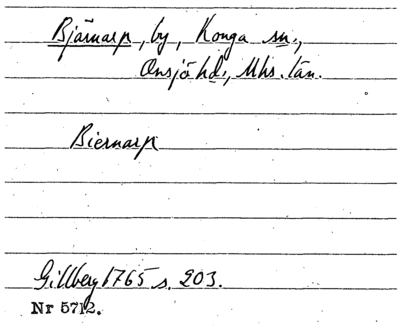 Bjärnarp, by, Konga sn.,
Onsjö hd., Mhs. län.
Biernarp
Gillberg 1765 s. 203.
Nr 5712.